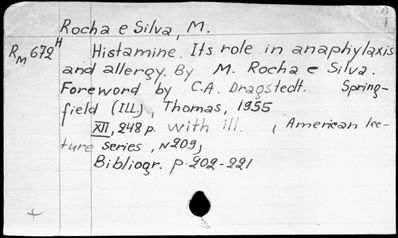 Rocha e Silva, M.
RM 672H Histamine. Its role in anaphylaxis
and allergy. By M. Rocha e Silva.
Foreword by C.A. Dragstedt. Spring-
field (ILL), Thomas, 1955
XII, 248 p. with ill. , American lec-
ture series, N209,
Bibliogr. p. 202-221